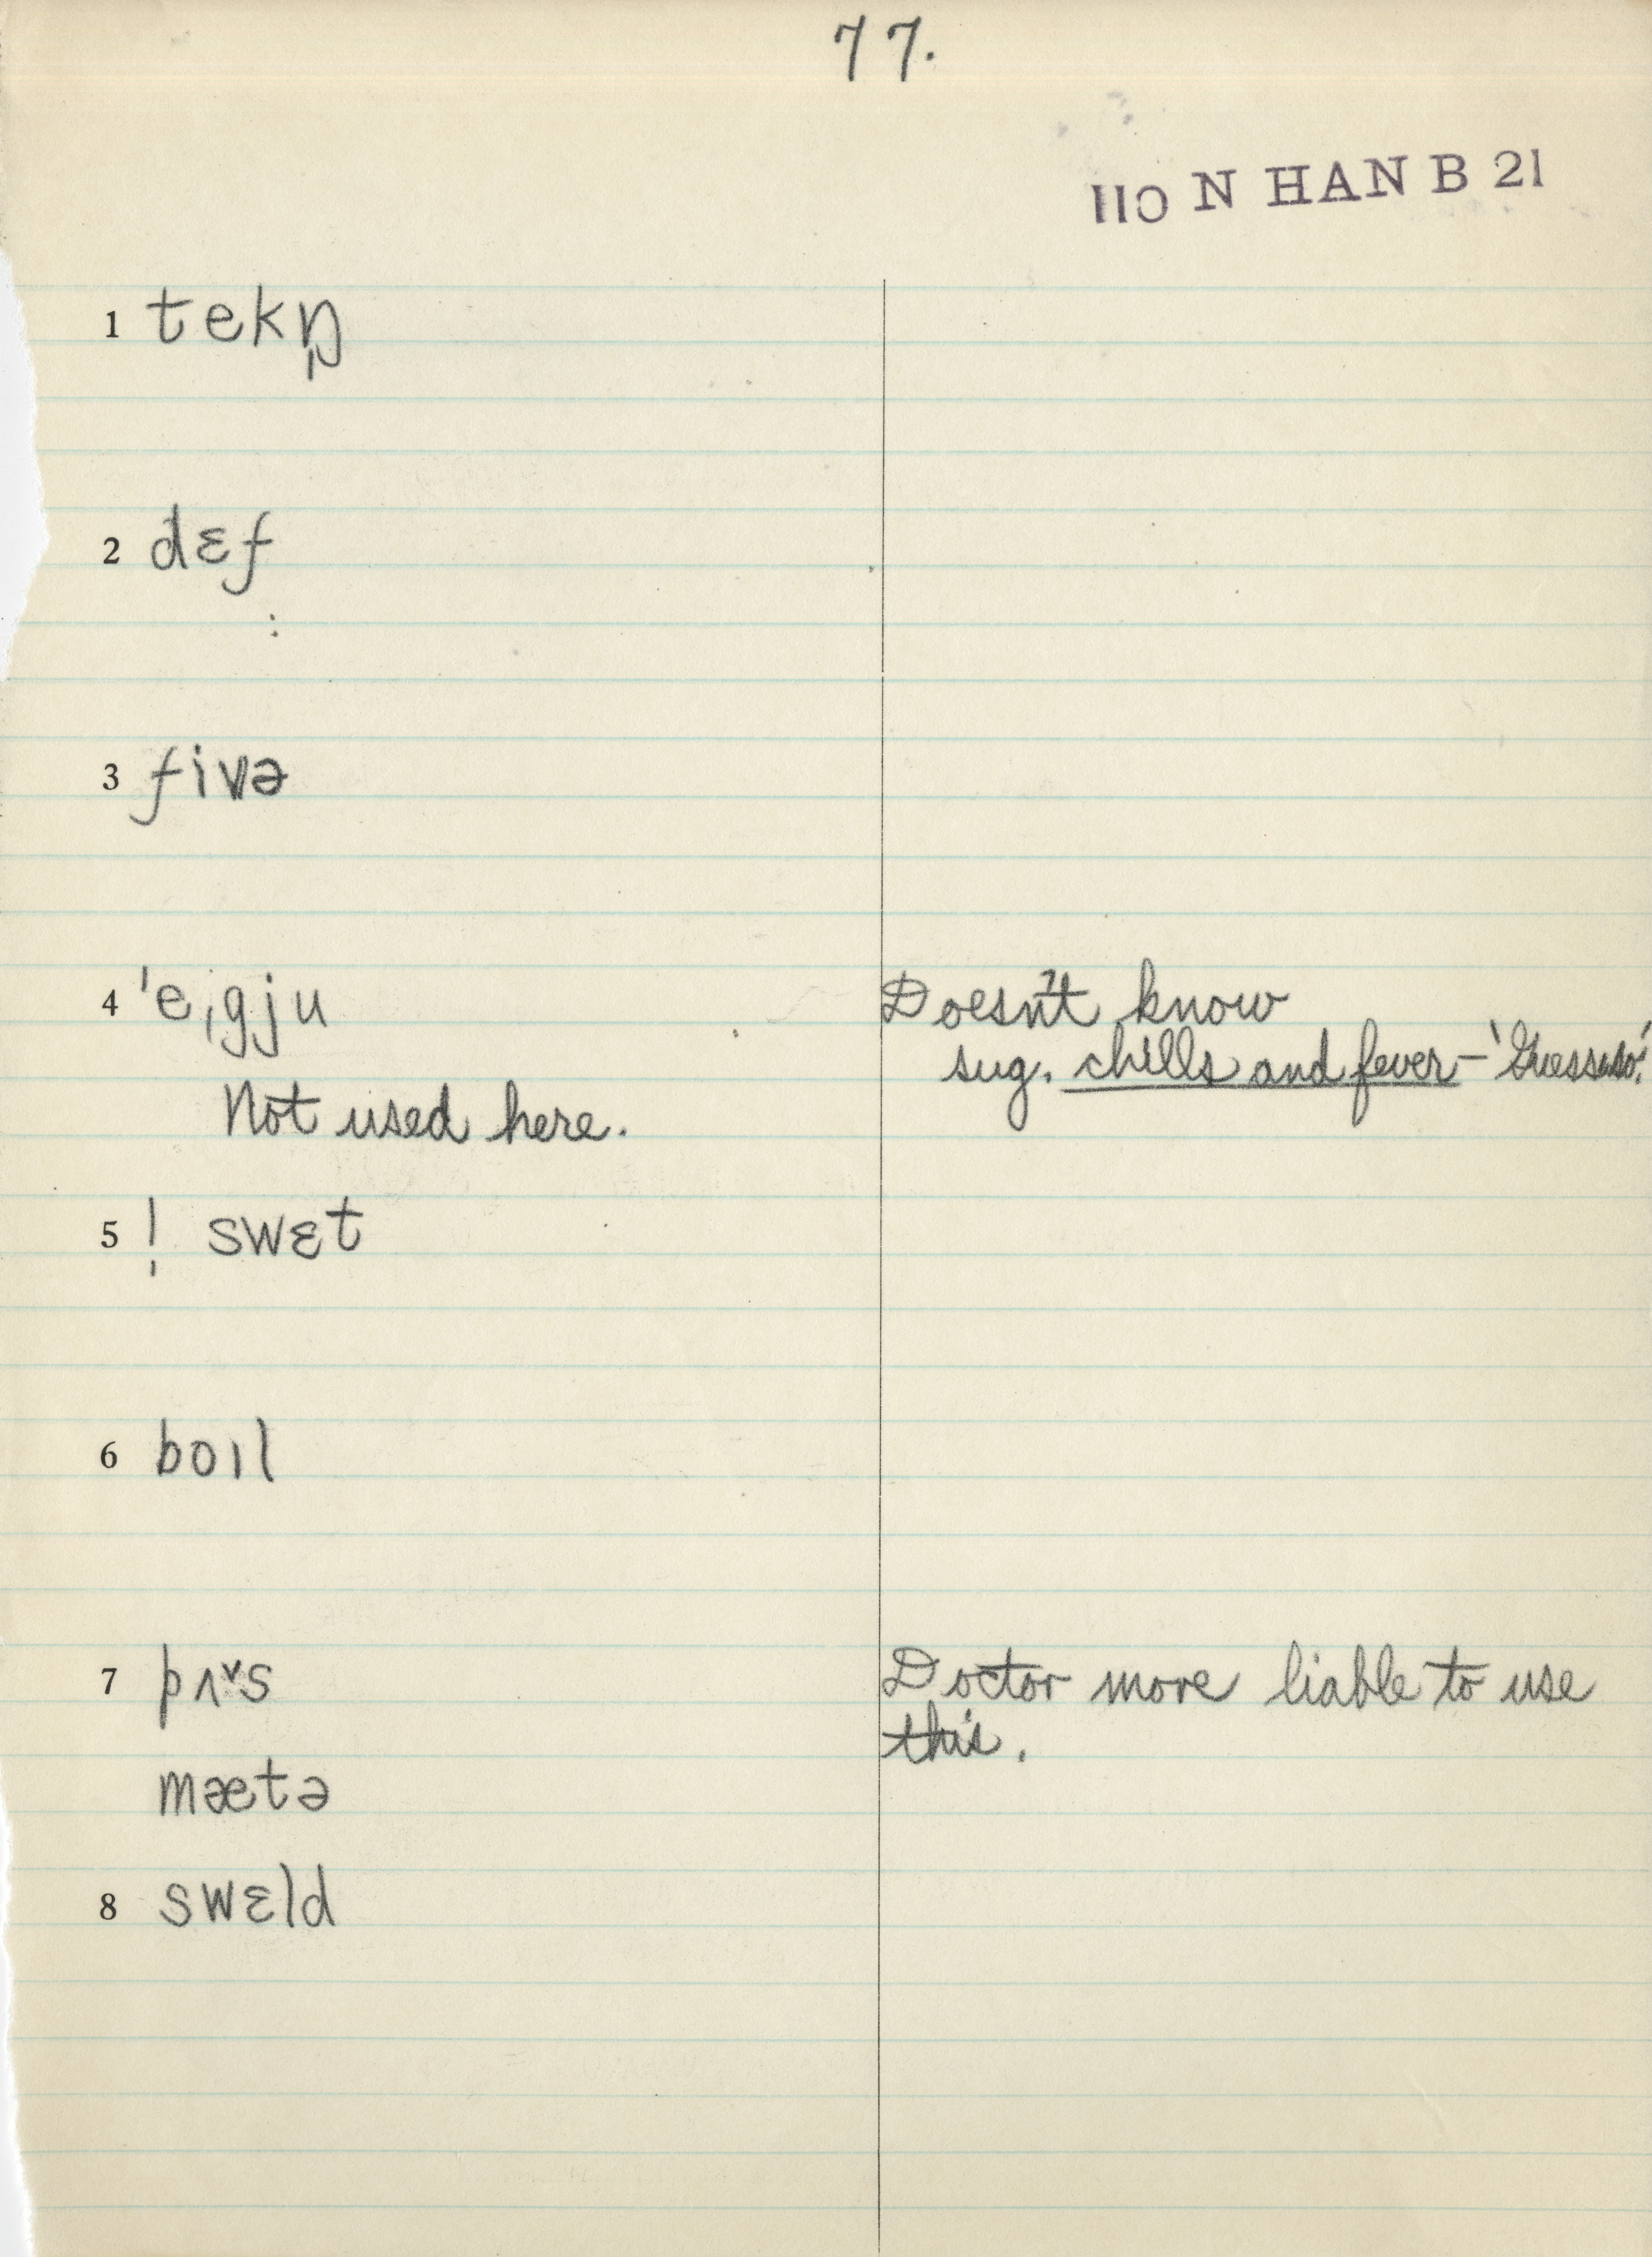 77.
110 N HAN B 21
1 tekŋ̩
2 dɛf
:
3 fivə
4 ˈeˌgju
Doesn't know
sug. chills and fever – 'Guess so.'
Not used here.
5 ! swɛt
6 boɪl
7 pʌ˅s
Doctor more liable to use
this.
mætə
8 swɛld